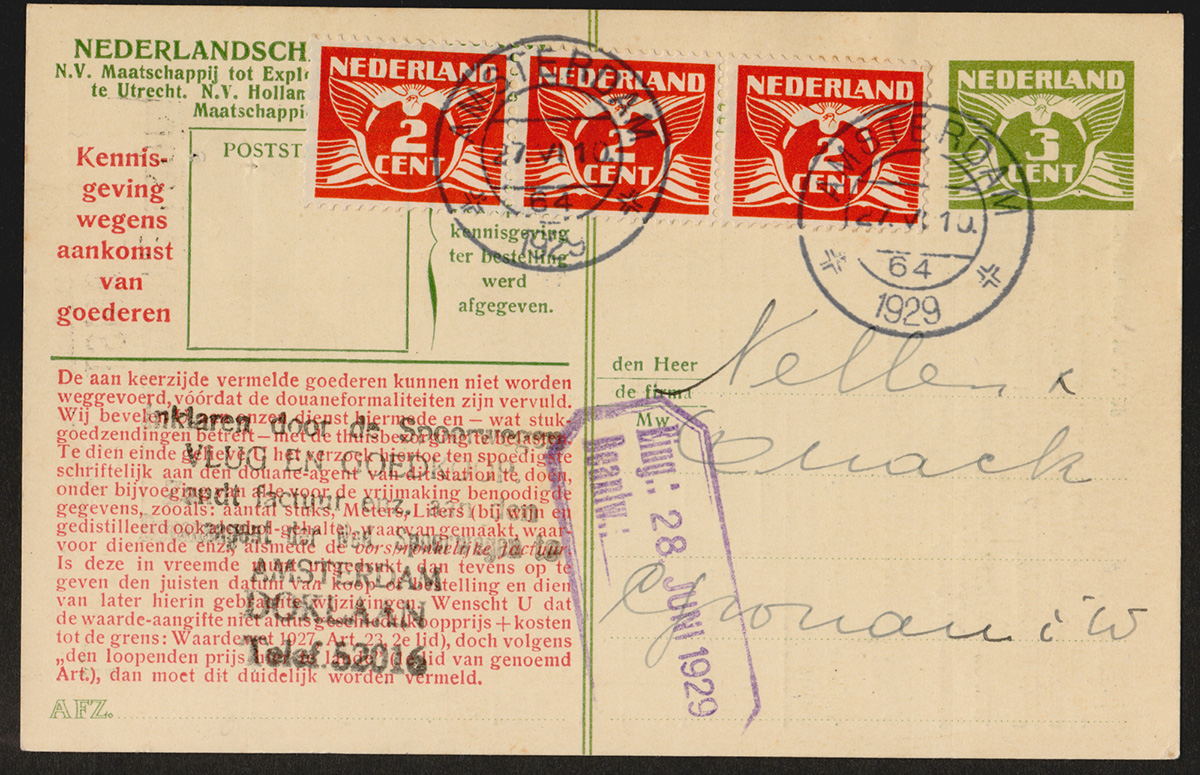 NEDERLANDSCH
N.V. Maatschappij tot Expl
te Utrecht. N.V. Hollan
Maatschappi
Kennis-
geving
wegens
aankomst
van
goederen
POSTST
kennisgeving
ter bestelling
werd
afgegeven.
NEDERLAND
2
CENT
NEDERLAND
2
CENT
NEDERLAND
2
CENT
NEDERLAND
3
CENT
AMSTERDAM
27 VI 10.
64
1929
AMSTERDAM
27.VI.10.
64
1929
De aan keerzijde vermelde goederen kunnen niet worden
weggevoerd, vóórdat de douaneformaliteiten zijn vervuld.
Wij bevelen onzen dienst hiermede en — wat stuk-
goedzendingen betreft — met de thuisbezorging te belasten.
Te dien einde gelieve U het verzoek hiertoe ten spoedigste
schriftelijk aan den douane-agent van dit station te doen,
onder bijvoeging van alle voor de vrijmaking benoodigde
gegevens, zooals: aantal stuks, Meters, liters (bij wijn en
gedistilleerd ook alcohol-gehalte), waarvan gemaakt, waar-
voor dienende enz., alsmede de oorspronkelijke factuur.
Is deze in vreemde munt uitgedrukt, dan tevens op te
geven den juisten datum van koop of bestelling en dien
van later hierin gebrachte wijzigingen. Wenscht U dat
de waarde-aangifte niet aldus geschiedt (koopprijs + kosten
tot de grens: Waardewet 1927, Art. 23, 2e lid), doch volgens
„den loopenden prijs hier te lande" lid van genoemd
Art.), dan moet dit duidelijk worden vermeld.
Inklaren door de Spoorwegen
VLUG EN GOEDKOOP
factuur enz. aan den
agent der Ned. Spoorwegen te
AMSTERDAM
DOKLAAN
Telef. 52016
AFZ.
den Heer
de firma
Mw
Nellen &
Quack
Gronau i W
Ring.: 28 JUNI 1929
Beantw.: